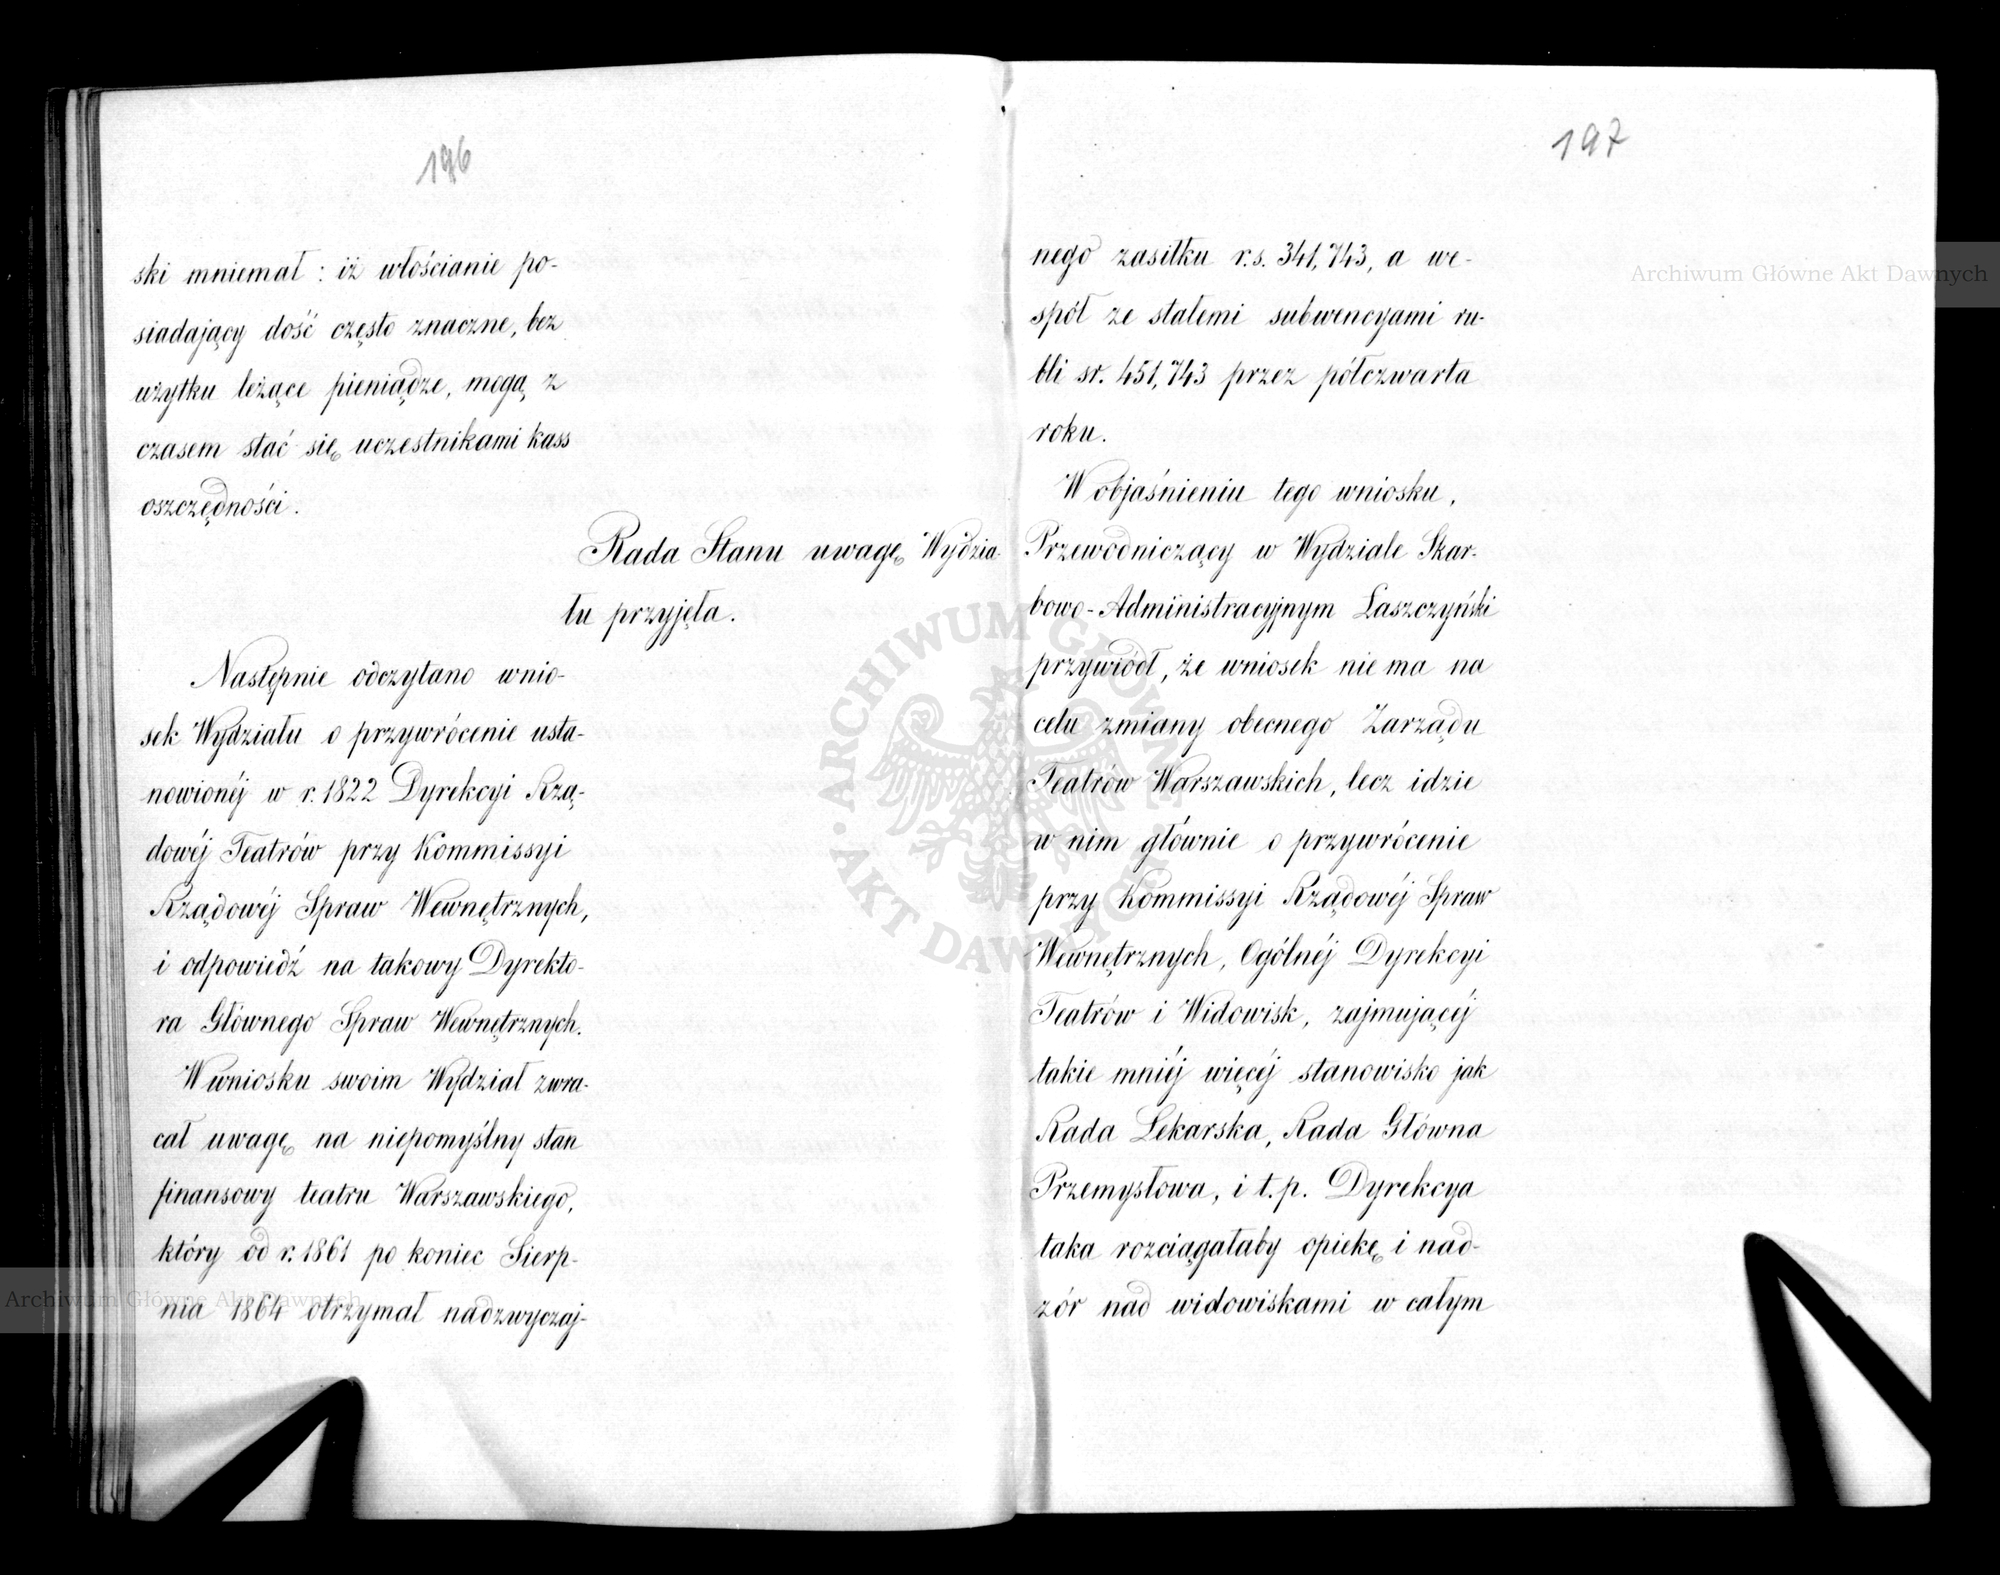 196
ski mniemał: iż włościanie po-
siadający dość często znaczne, bez
użytku leżące pieniądze, mogą z
czasem stać się uczestnikami kass
oszczędności.
Rada Stanu uwagę Wydzia-
łu przyjęła.
Następnie odczytano wnio-
sek Wydziału o przywrócenie usta-
nowionéj w r. 1822 Dyrekcyi Rzą-
dowéj Teatrów przy Kommissyi
Rządowéj Spraw Wewnętrznych,
i odpowiedź na takowy Dyrekto-
ra Głównego Spraw Wewnętrznych.
W wniosku swoim Wydział zwra-
cał uwagę na niepomyślny stan
finansowy teatru Warszawskiego,
który od r. 1861 po koniec Sierp-
nia 1864 otrzymał nadzwyczaj-
197
nego zasiłku r.s. 341,743, a we-
spół ze stałemi subwencyami ru-
bli sr. 451,743 przez półczwarta
roku.
W objaśnieniu tego wniosku,
Przewodniczący w Wydziale Skar-
bowo-Administracyjnym Łaszczyński
przywiódł, że wniosek nie ma na
celu zmiany obecnego Zarządu
Teatrów Warszawskich, lecz idzie
w nim głównie o przywrócenie
przy Kommissyi Rządowéj Spraw
Wewnętrznych, Ogólnéj Dyrekcyi
Teatrów i Widowisk, zajmującéj
takie mniéj więcéj stanowisko jak
Rada Lekarska, Rada Główna
Przemysłowa, i t. p. Dyrekcya
taka rozciągałaby opiekę i nad-
zór nad widowiskami w całym
Archiwum Główne Akt Dawnych
Archiwum Główne Akt Dawnych
ARCHIWUM GŁÓWNE AKT DAWNYCH